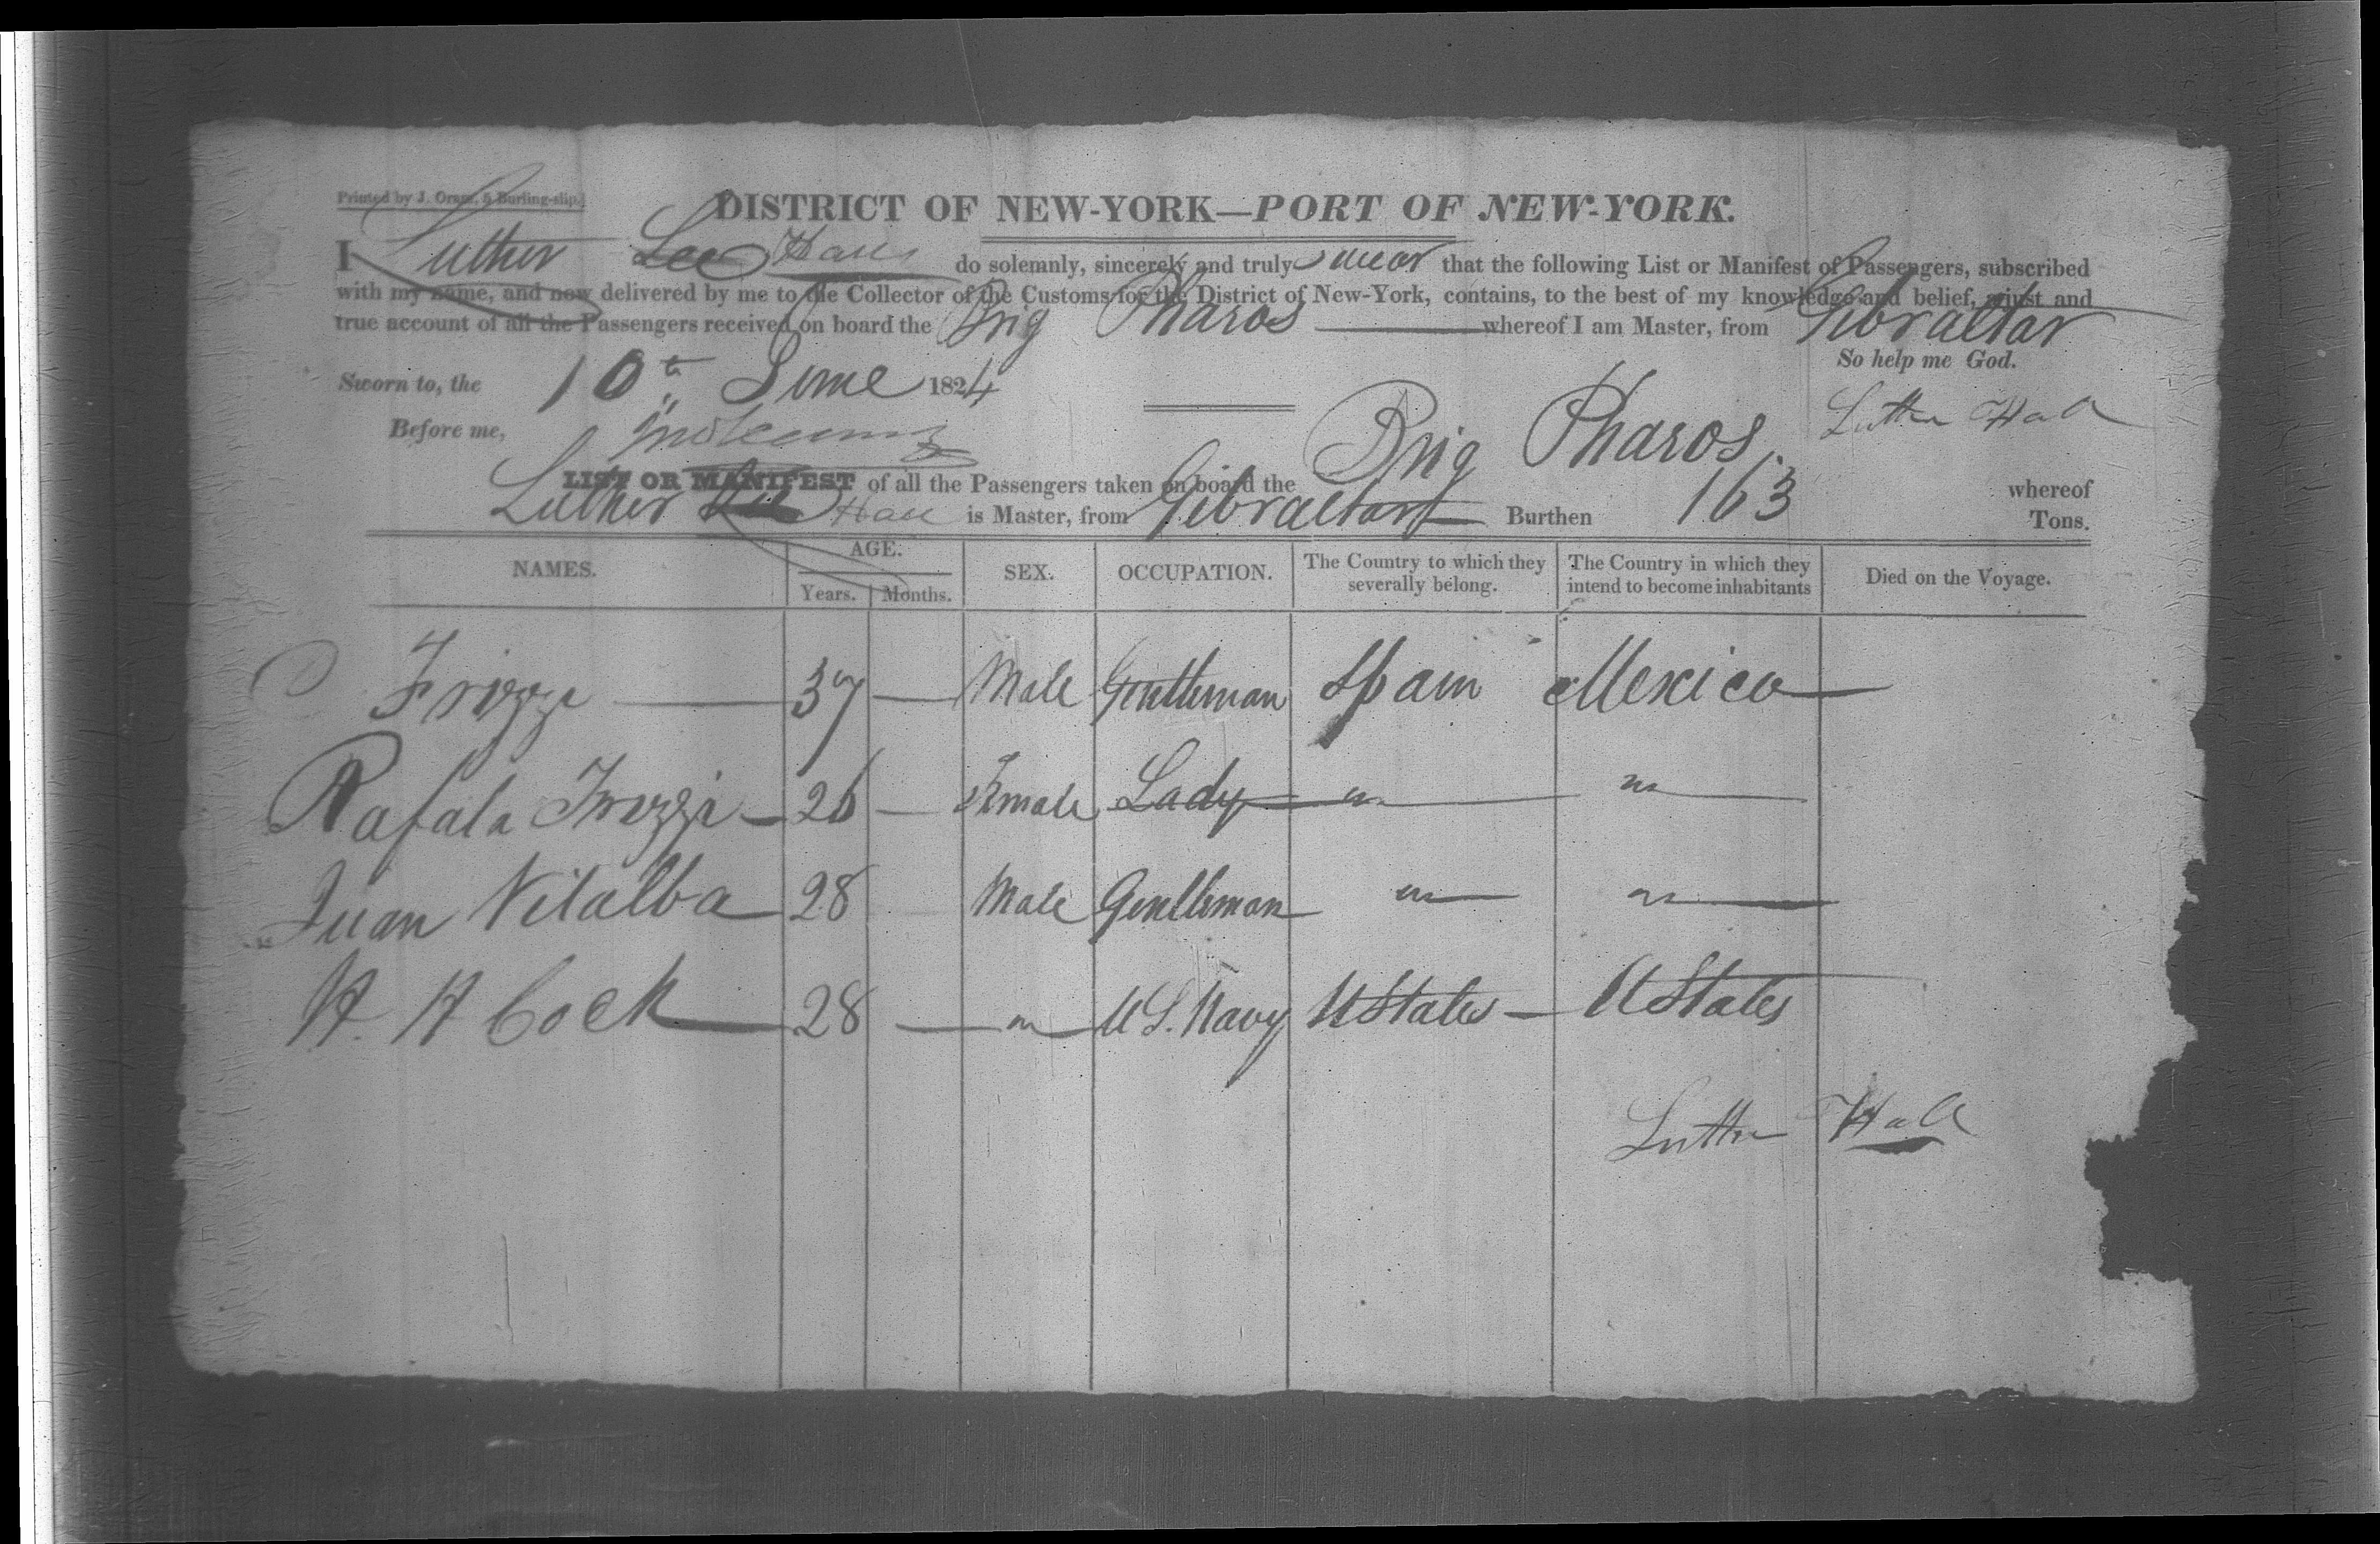 Printed by J. Oram, 5 Burling-slip.
DISTRICT OF NEW-YORK—PORT OF NEW-YORK.
I Luther Lee Hall do solemnly, sincerely and truly swear that the following List or Manifest of Passengers, subscribed
with my name, and now delivered by me to the Collector of the Customs for the District of New-York, contains, to the best of my knowledge and belief, a just and
true account of all the Passengers received on board the Brig Pharos whereof I am Master, from Gibraltar
So help me God.
Sworn to, the 10th June 1824
Luther Hall
Before me,
LIST OR MANIFEST of all the Passengers taken on board the Brig Pharos whereof
Luther Hall is Master, from Gibraltar Burthen 163 Tons.
NAMES. AGE. SEX. OCCUPATION. The Country to which they severally belong. The Country in which they intend to become inhabitants Died on the Voyage.
Years. Months.
37 — Male Gentleman Spain Mexico
Rafala 26 — Female Lady " "
Juan Vilalba 28 Male Gentleman " "
H. H Cock 28 — " U S. Navy U States — U States
Luther Hall